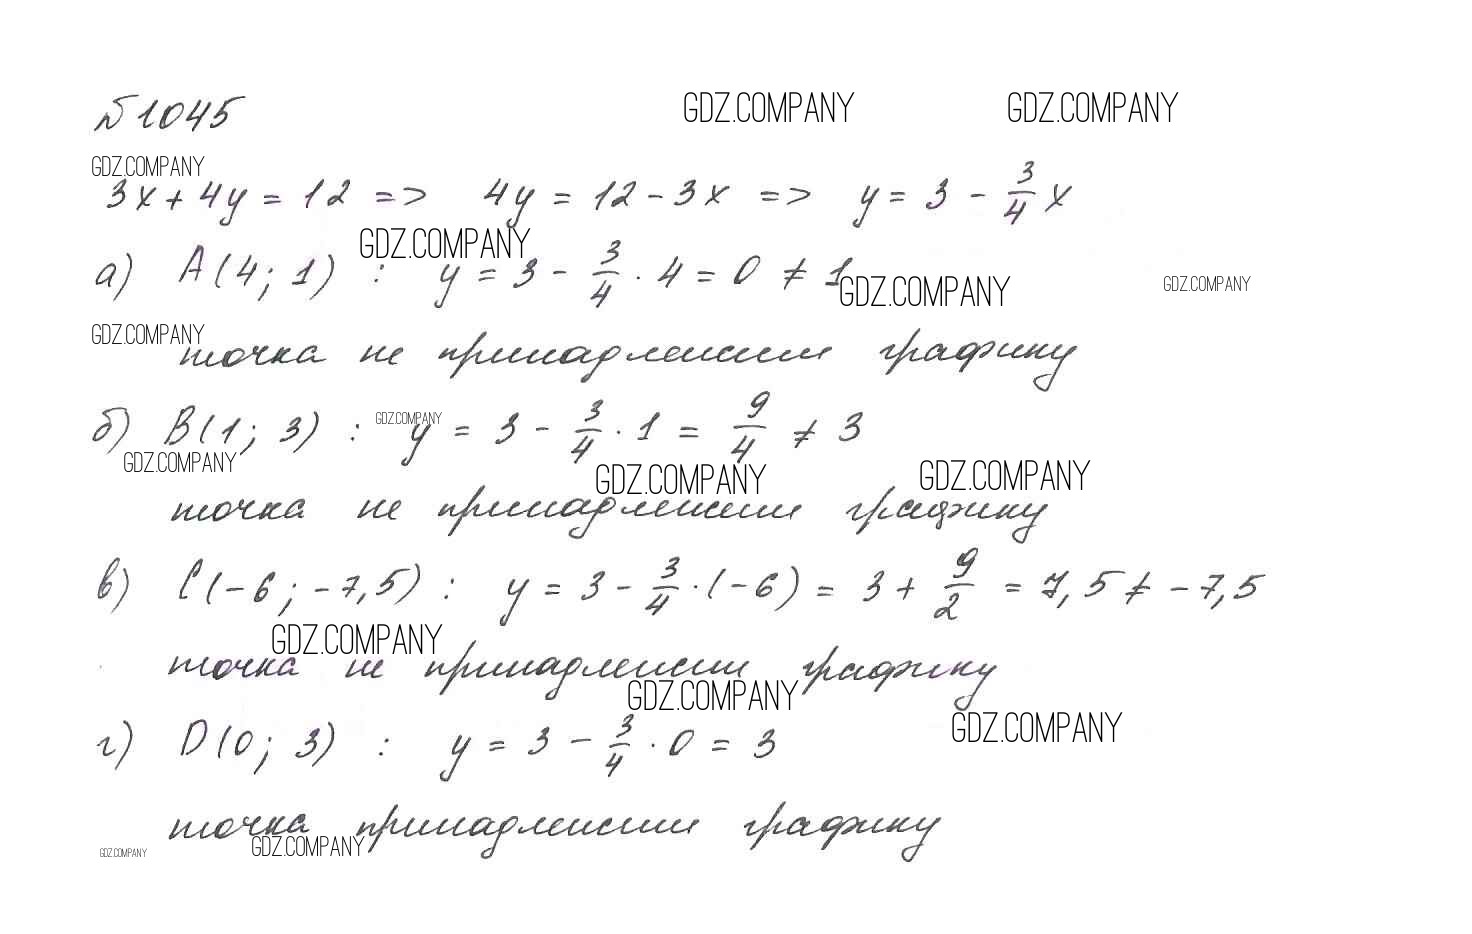 №1045
GDZ.COMPANY GDZ.COMPANY
GDZ.COMPANY
3x + 4y = 12 => 4y = 12 - 3x => y = 3 - 3/4 x
GDZ.COMPANY
а) A(4; 1) : y = 3 - 3/4 · 4 = 0 ≠ 1
GDZ.COMPANY GDZ.COMPANY
GDZ.COMPANY
точка не принадлежит графику
б) B(1; 3) : y = 3 - 3/4 · 1 = 9/4 ≠ 3
GDZ.COMPANY
GDZ.COMPANY GDZ.COMPANY GDZ.COMPANY
точка не принадлежит графику
в) C(-6; -7,5) : y = 3 - 3/4 · (-6) = 3 + 9/2 = 7,5 ≠ -7,5
GDZ.COMPANY
точка не принадлежит графику
GDZ.COMPANY GDZ.COMPANY
г) D(0; 3) : y = 3 - 3/4 · 0 = 3
точка принадлежит графику
GDZ.COMPANY GDZ.COMPANY